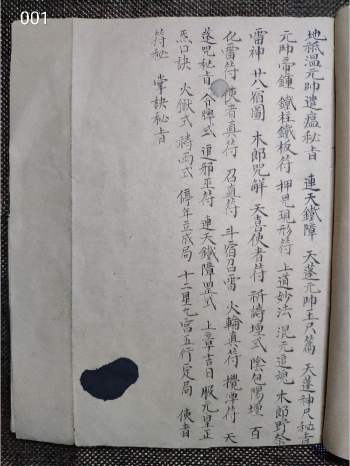 001
地祇溫元帥遣瘟秘旨 連天鐵障 天蓬元帥玉尺篇 天蓬神尺秘旨
元帥帝鐘 鐵柱鐵板符 押鬼現形符 上道妙法 混元追魂 木郎野祭
雷神 廿八宿圖 木郎咒解 天喜使者符 祈禱壇式 陰包陽壇 百
化雷符 使者真符 召真符 斗宿召雷 火輪真符 攪潭符 天
蓬咒秘旨 令牌式 追邪巫符 連天鐵障罡式 上章吉日 服九皇正
炁口訣 火獄式 禱雨式 停年立成局 十二星九宮五行定局 使者
符秘 掌訣秘旨